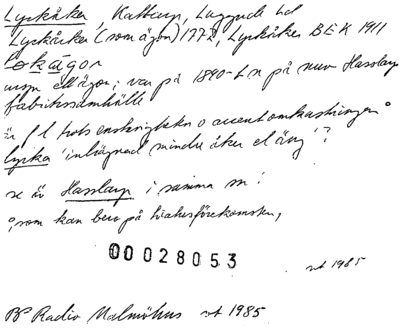 Lyckåker, Kattarp, Luggude hd
Lyckåcker (som ägor) 1772, Lyckåker BEK 1911
lokägor
ursp. ellägor; var på 1890-t n på nuv Hasslarp
fabrikssamhälle
är f l trots enskrigheten o accentomkastningen
lycka 'inhägnad mindre åker el äng'?
se äv Hasslarp i samma sn!
som kan bero på hiatusförekomsten,
00028053
vt 1985
BP Radio Malmöhus vt 1985